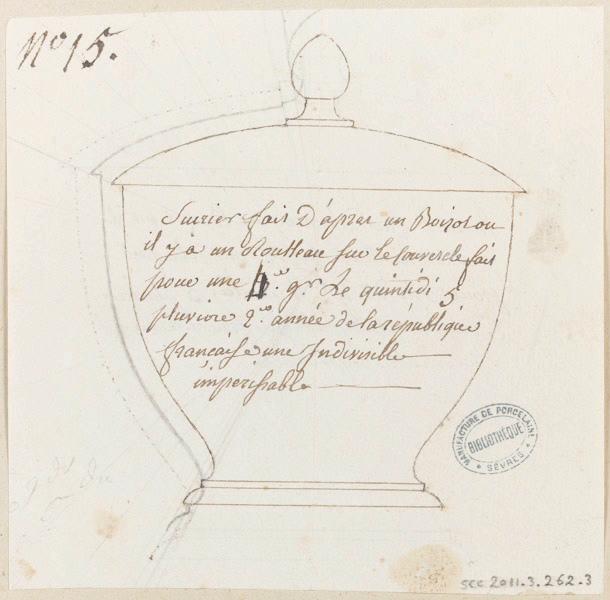 N.o 15.
Sucrier fait D'apres un Boizot ou
il y a un Rouleau sur le Couvercle fait
pour une 4.e gr Le quintidi 5
pluviose 2.e année de la république
francaise une Indivisible
imperissable
MANUFACTURE DE PORCELAINE
BIBLIOTHÈQUE
SÈVRES
SCC 2011.3.262.3